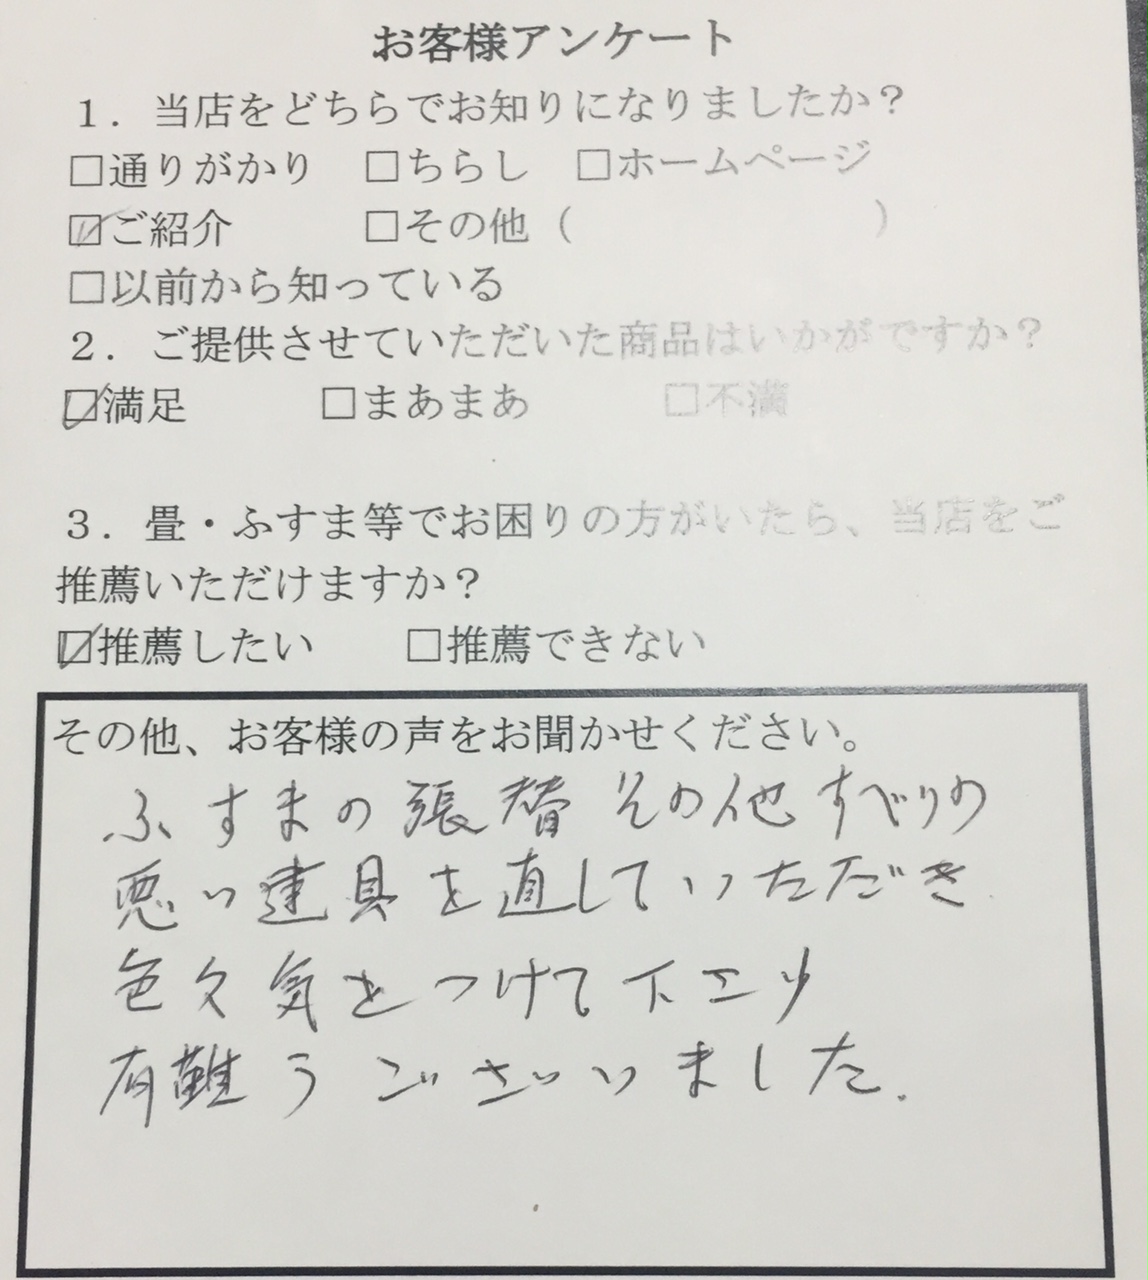 お客様アンケート
1．当店をどちらでお知りになりましたか？
□通りがかり　□ちらし　□ホームページ
☑ご紹介　　　□その他（　　　　　　　）
□以前から知っている
2．ご提供させていただいた商品はいかがですか？
☑満足　　　□まあまあ　　　□不満
3．畳・ふすま等でお困りの方がいたら、当店をご
推薦いただけますか？
☑推薦したい　　□推薦できない
その他、お客様の声をお聞かせください。
ふすまの張替その他すべりの
悪い建具を直していただき
色々気をつけて下さり
有難うございました.